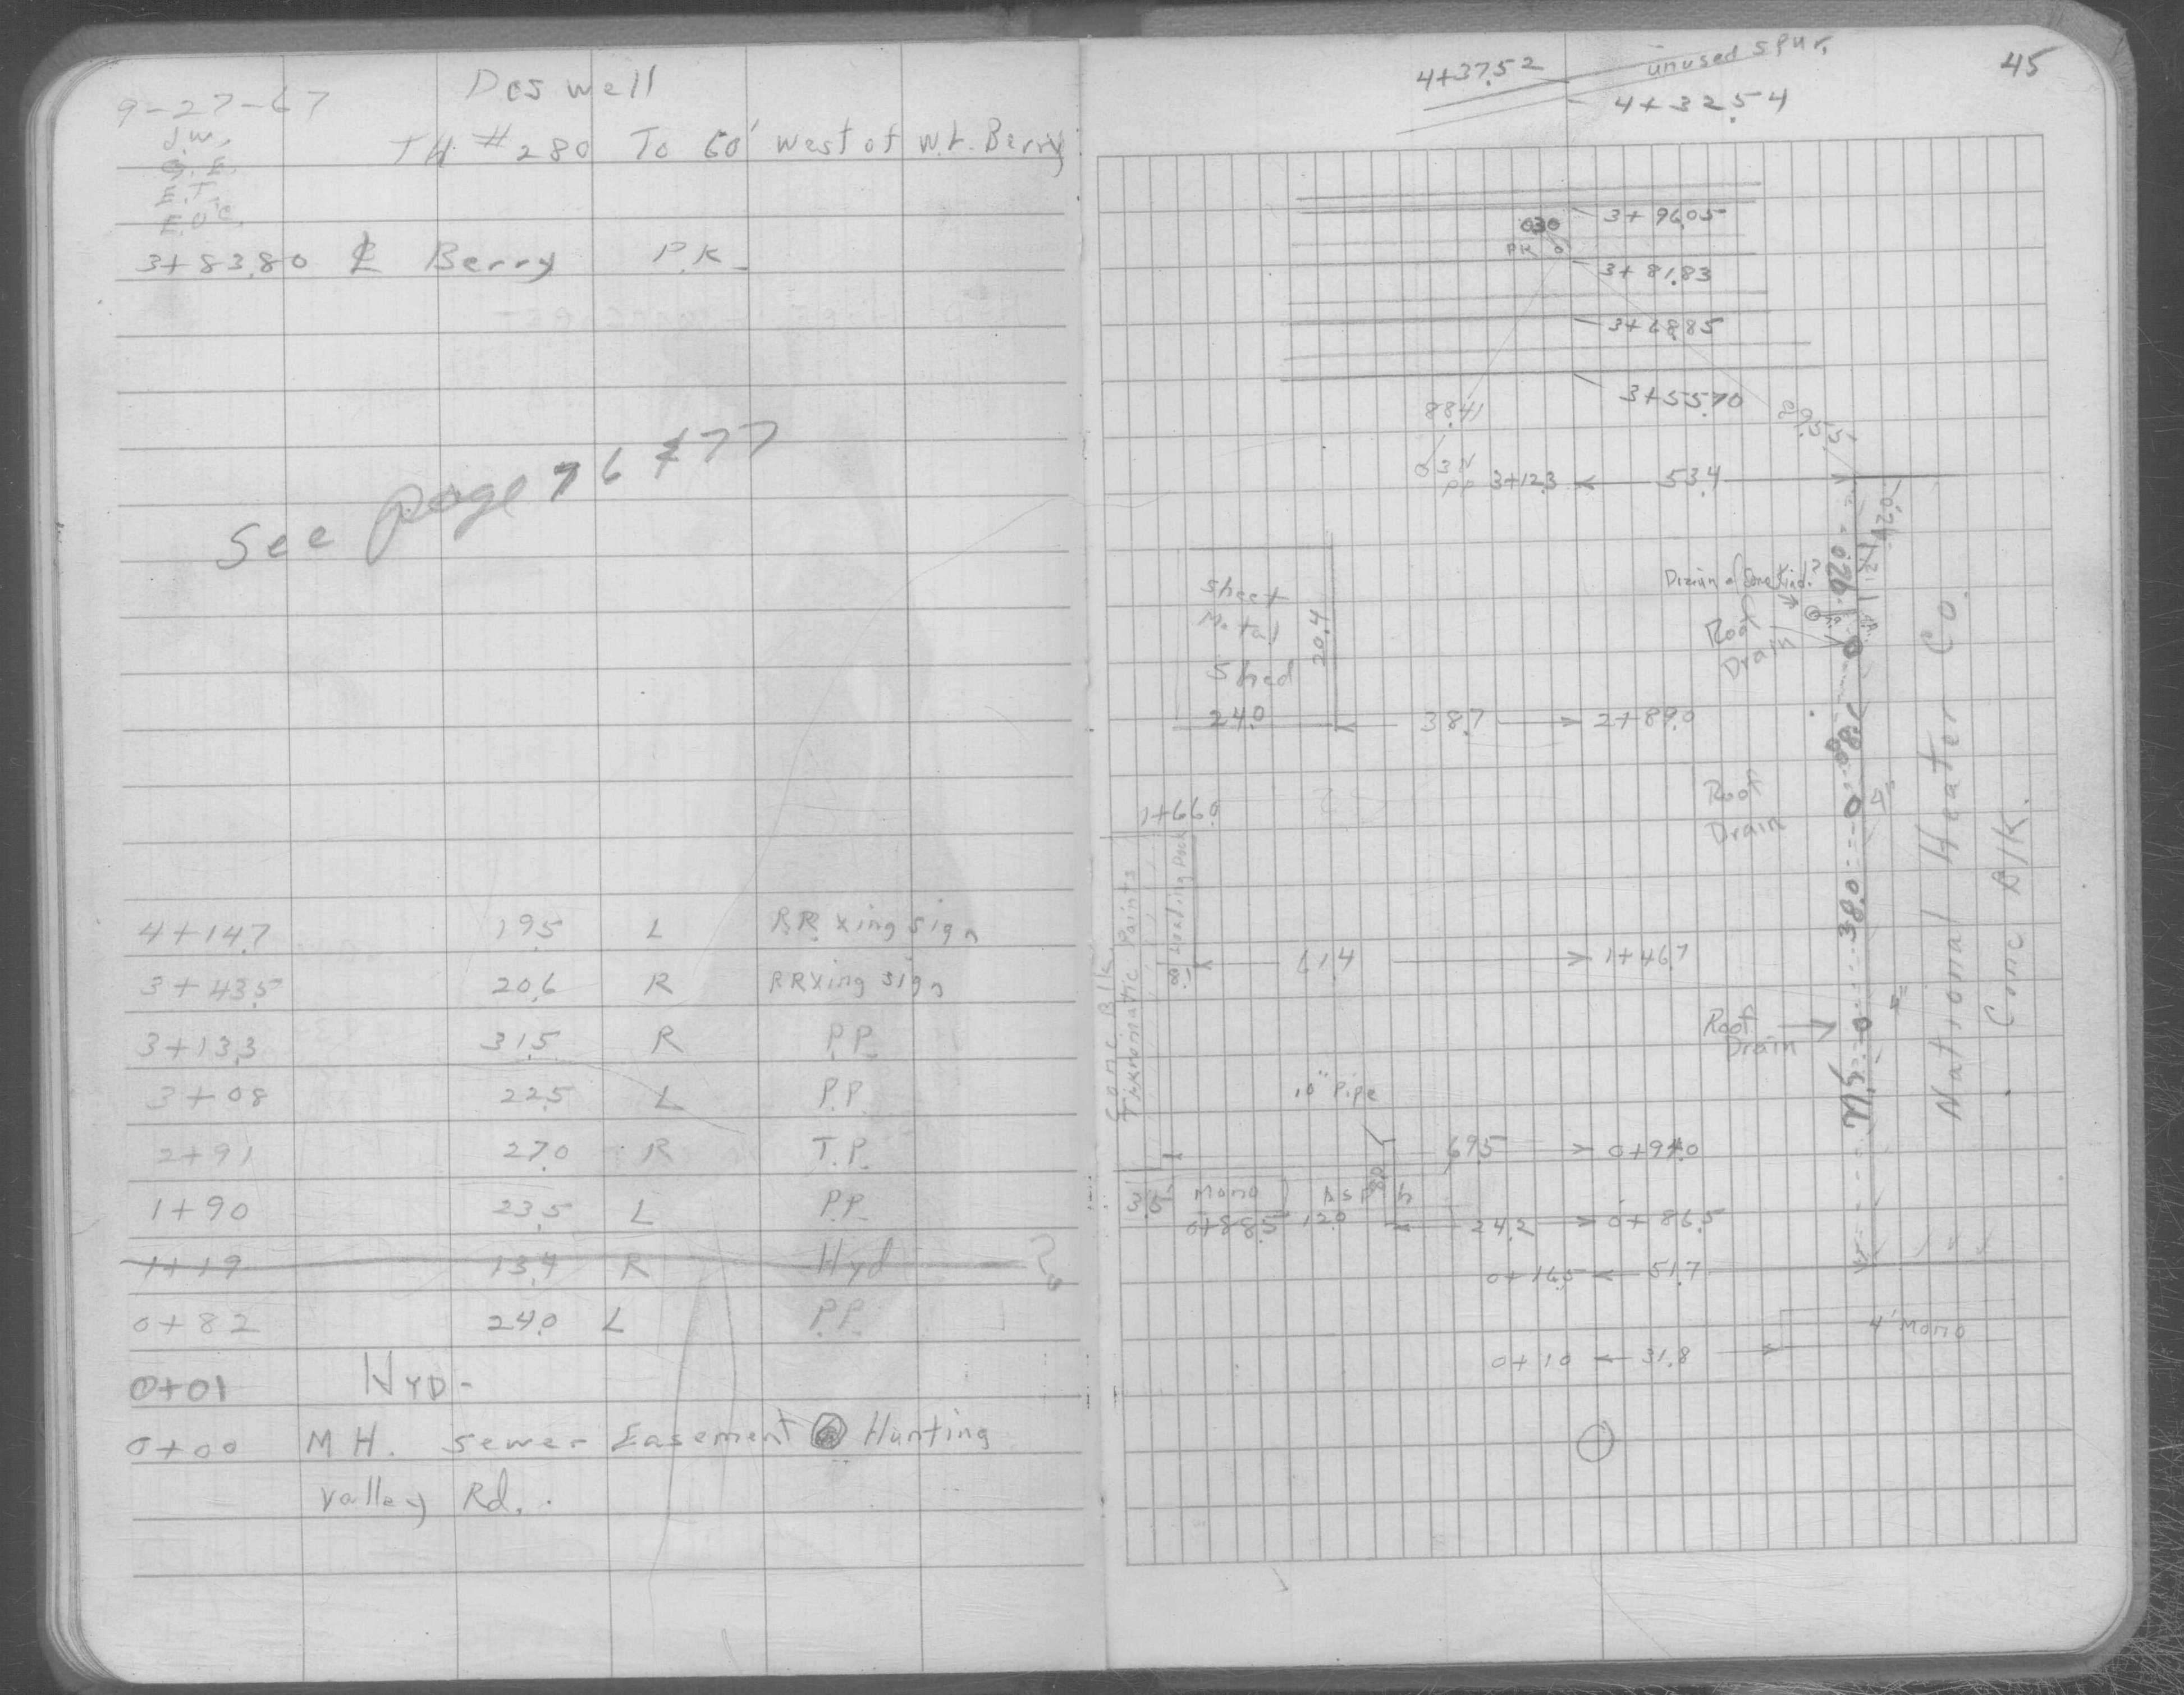 9-27-67
Doswell
J.W.
G.E.
E.T.
TH #280 To 60' West of W.L. Berry
3+83.80 ℄ Berry P.K.
See page 76 & 77
4+14.7 19.5 L R.R. Xing Sign
3+43.5 20.6 R RR Xing Sign
3+13.3 31.5 R P.P.
3+08 22.5 L P.P.
2+91 27.0 R T.P.
1+90 23.5 L P.P.
1+19 13.4 R Hyd ?
0+82 24.0 L P.P.
0+01 HYD-
0+00 M.H. Sewer Easement @ Hunting
Valley Rd.
45
4+37.52 unused spur.
4+32.54
3+96.05
030
PK
3+81.83
3+68.85
3+55.70
88.41
3N
PP 3+12.3 53.4
92.0
92.0
Drain of Some Kind?
Sheet
Metal
Shed
20.4
24.0 38.7 2+89.0
Roof
Drain
Roof
Drain
4"
1+66.0
Loading Dock
Conc Blk.
61.4 1+46.7
38.0
Roof
Drain
4"
National Heater Co.
Conc Blk.
10" Pipe
69.5 0+94.0
Mono Asph
0+88.5 12.0 24.2 0+86.5
0+16.5 51.7
4' Mono
0+10 31.8